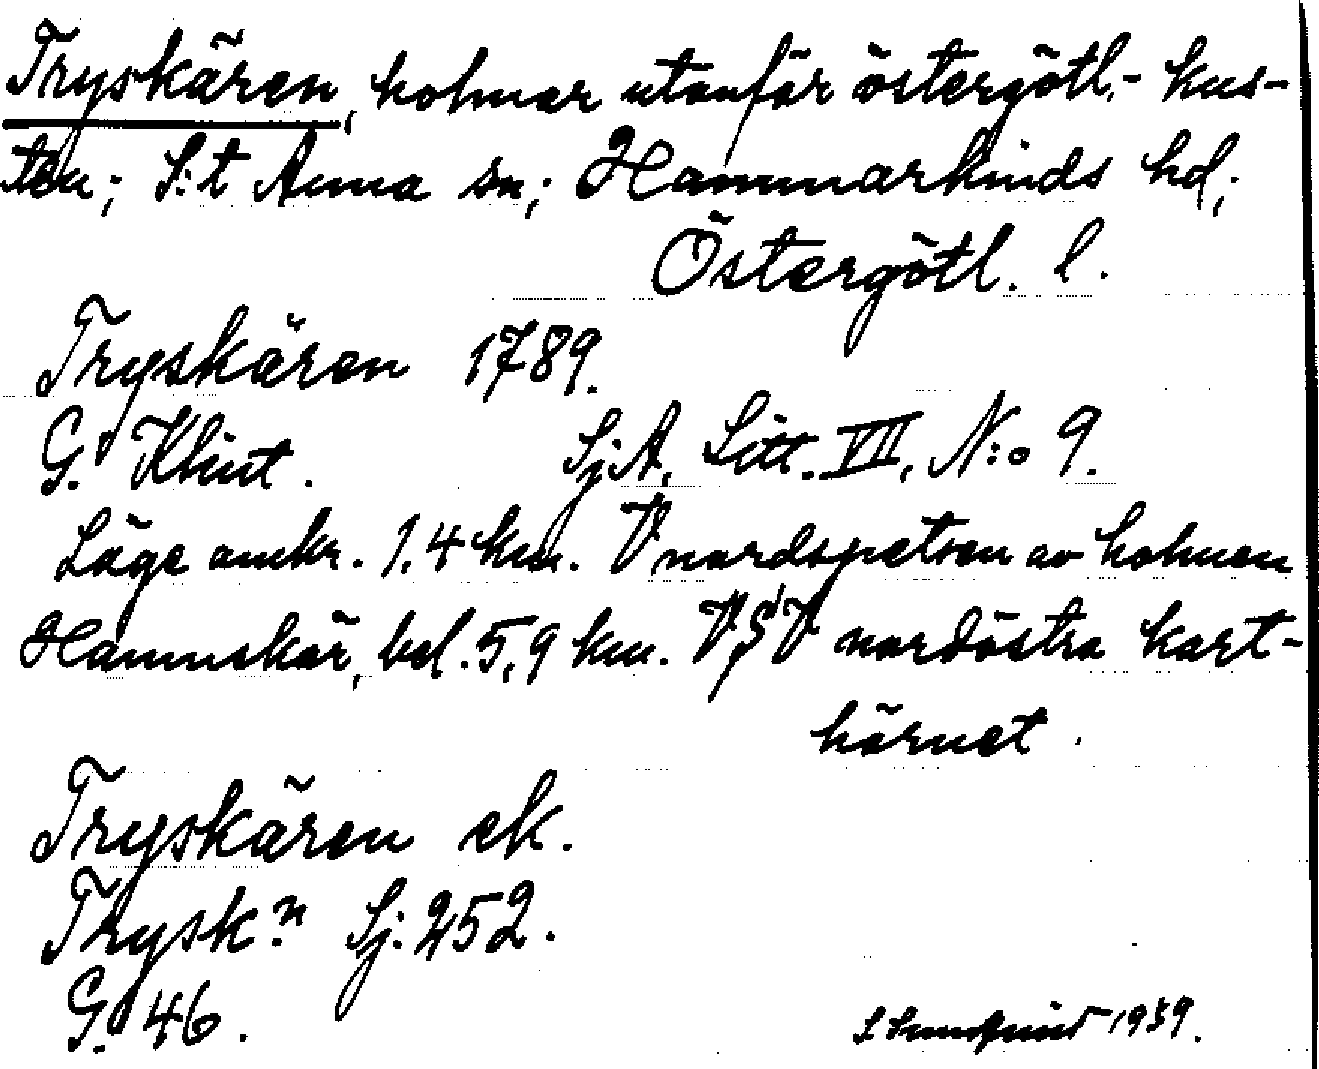 Tryskären, holmar utanför östergötl.- kus-
ten; S:t Anna sn; Hammarkinds hd;
Östergötl. l.
Tryskären 1789.
G. Klint. SjA, Litt. VII, N:o 9.
Läge omkr. 1.4 km. V nordspetsen av holmen
Hamnskär, bel. 5,9 km. VSV nordöstra kart-
hörnet.
Tryskären ek.
Trysk:n Sj. 252.
G. 46.
1939.